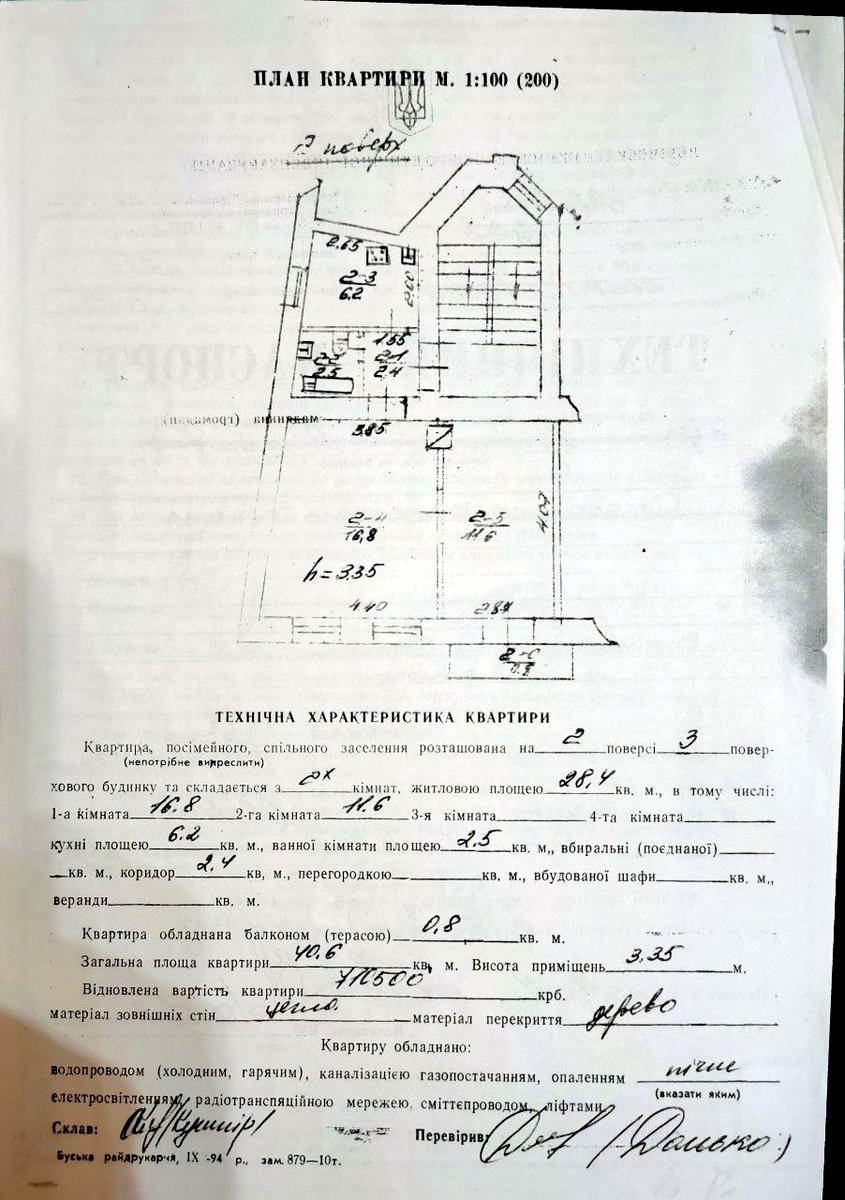 ПЛАН КВАРТИРИ М. 1:100 (200)
2 поверх
2.65
2-3
6.2
2.00
1.55
2-2
2.5
2-1
2.4
3.85
2-4
16,8
2-5
11.6
4.07
h=3.35
4.40
2.87
2-6
0.8
ТЕХНІЧНА ХАРАКТЕРИСТИКА КВАРТИРИ
Квартира, посімейного, спільного заселення розташована на 2 поверсі 3 повер-
(непотрібне викреслити)
хового будинку та складається з 2х кімнат, житловою площею 28,4 кв. м., в тому числі:
1-а кімната 16.8 2-га кімната 11.6 3-я кімната 4-та кімната
кухні площею 6.2 кв. м., ванної кімнати площею 2.5 кв. м,, вбиральні (поєднаної)
кв. м., коридор 2.4 кв, м., перегородкою кв. м., вбудованої шафи кв. м.,
веранди кв. м.
Квартира обладнана балконом (терасою) 0,8 кв. м.
Загальна площа квартири 40.6 кв. м. Висота приміщень 3.35 м.
Відновлена вартість квартири 710500 крб.
матеріал зовнішніх стін цегла матеріал перекриття дерево
Квартиру обладнано:
водопроводом (холодним, гарячим), каналізацією газопостачанням, опаленням пічне
електросвітленням, радіотранспяційною мережею, сміттєпроводом, ліфтами
(вказати яким)
Склав: Перевірив:
Буська райдрукарня, IX -94 р., зам. 879—10т.